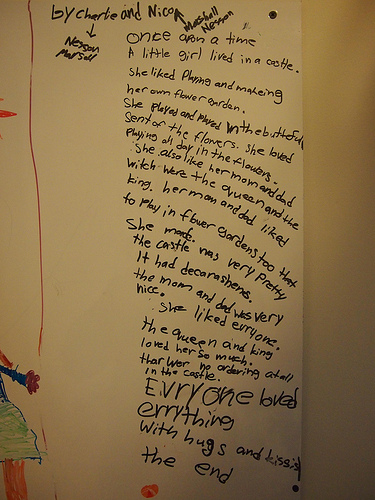 by charlie and Nico
Marshall
Nesson
Nesson
Marsall
once apon a time
A little girl lived in a castle.
She liked Playing and makeing
her own flower garden.
She played and played in the butiful
sent of the flowers. she loved
playing all day in the flowers.
She also like her mom and dad
witch were the queen and the
king. her mom and dad liked
to play in flower gardens too that
She made.
the castle was very pretty
It had decarashens.
the mom and dad was very
nice.
She liked evryone.
the queen and king
loved her so much.
thar wer no ordering at all
in the castle.
Evryone loved
errything
with hugs and kissis
the end